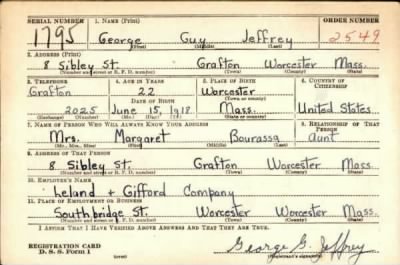 SERIAL NUMBER 1. NAME (Print) ORDER NUMBER
1795 George Guy Jeffrey 2549
(First) (Middle) (Last)
2. ADDRESS (Print)
8 Sibley St. Grafton Worcester Mass.
(Number and street or R. F. D. number) (Town) (County) (State)
3. TELEPHONE 4. AGE IN YEARS 5. PLACE OF BIRTH 6. COUNTRY OF CITIZENSHIP
Grafton 22 Worcester
DATE OF BIRTH (Town or county)
2025 June 15, 1918 Mass. United States
(Exchange) (Number) (Mo.) (Day) (Yr.) (State or country)
7. NAME OF PERSON WHO WILL ALWAYS KNOW YOUR ADDRESS 8. RELATIONSHIP OF THAT PERSON
Mrs. Margaret Bourassa aunt
(Mr., Mrs., Miss) (First) (Middle) (Last)
9. ADDRESS OF THAT PERSON
8 Sibley St. Grafton Worcester Mass.
(Number and street or R. F. D. number) (Town) (County) (State)
10. EMPLOYER'S NAME
Leland + Gifford Company
11. PLACE OF EMPLOYMENT OR BUSINESS
Southbridge St. Worcester Worcester Mass.
(Number and street or R. F. D. number) (Town) (County) (State)
I AFFIRM THAT I HAVE VERIFIED ABOVE ANSWERS AND THAT THEY ARE TRUE.
REGISTRATION CARD
D. S. S. Form 1
George G. Jeffrey